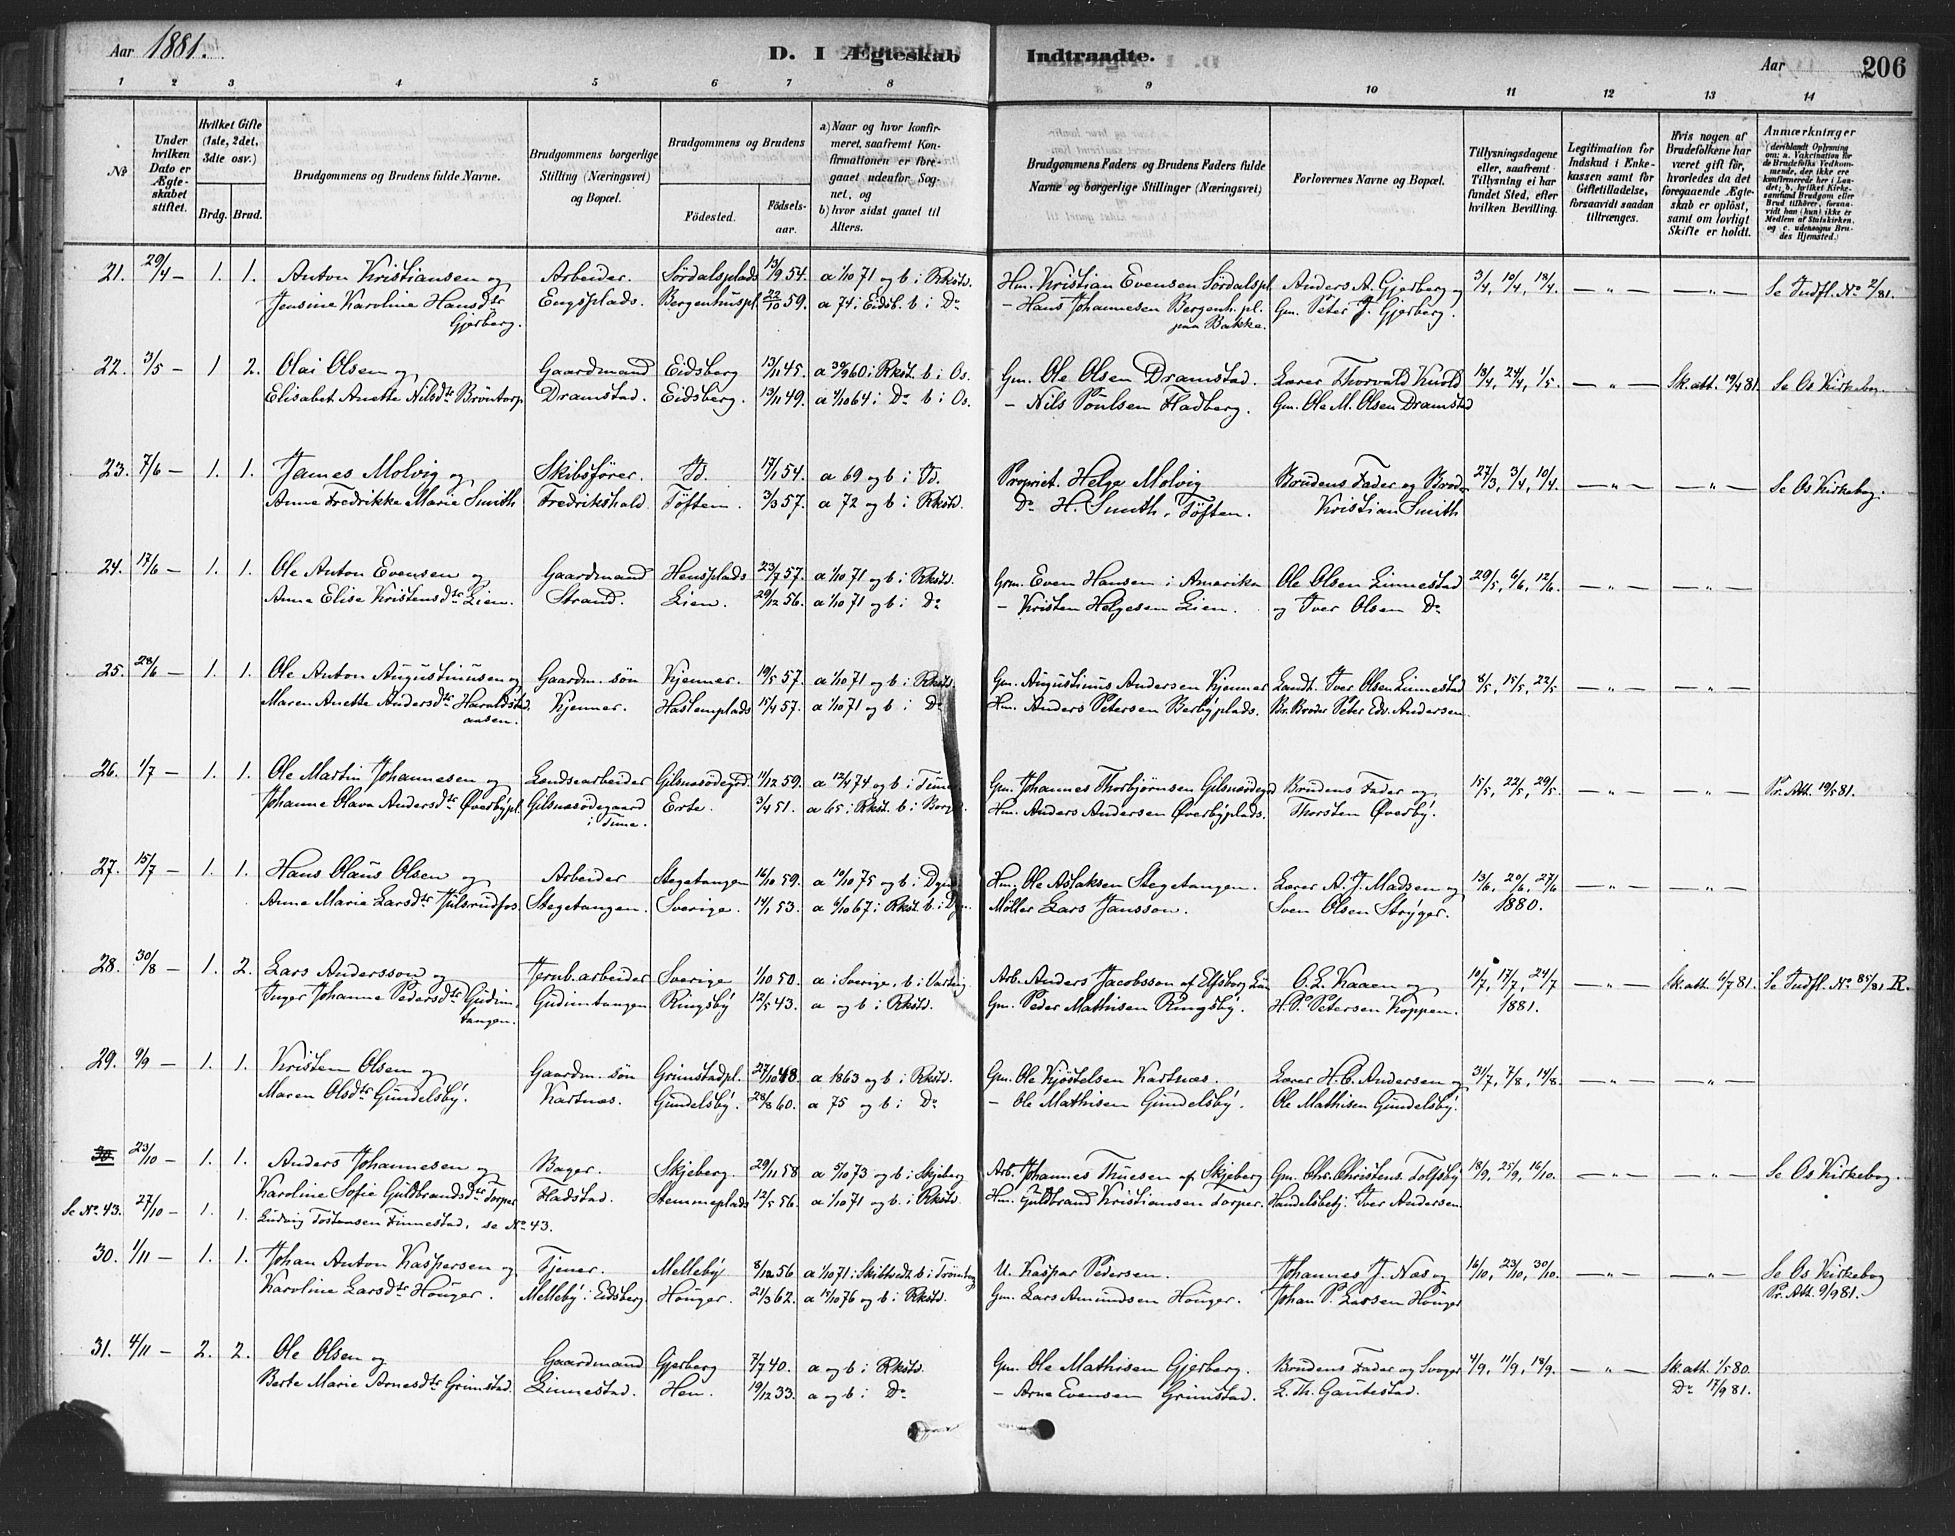 Aar 1881. D. I Ægteskab Indtraadte. Aar 206
1 2 3 4 5 6 7 8 9 10 11 12 13 14
No
Under hvilken Dato er Ægteskabet stiftet.
Hvilket Gifte (1ste, 2det, 3die osv.)
Brdg. Brud.
Brudgommens og Brudens fulde Navne.
Brudgommens borgerlige Stilling (Næringsvei) og Bopæl.
Brudgommens og Brudens
Födested. Födselsaar.
a) Naar og hvor konfirmeret, saafremt Konfirmationen er foregaaet udenfor Sognet, og
b) hvor sidst gaaet til Alters.
Brudgommens Faders og Brudens Faders fulde Navne og borgerlige Stillinger (Næringsvei)
Forlovernes Navne og Bopæl.
Tillysningsdagene eller, saafremt Tillysning ei har fundet Sted, efter hvilken Bevilling.
Legitimation for Indskud i Enkekassen samt for Giftetilladelse, forsaavidt saadan tiltrænges.
Hvis nogen af Brudefolkene har været gift för, hvorledes da det foregaaende Ægteskab er oplöst, samt om lovligt Skifte er holdt.
Anmærkninger (deriblandt Oplysning om: a. Vakcination for de Brudefolks Vedkommende, der ikke ere konfirmerede her i Landet; b. hvilket Kirkesamfund Brudgom eller Brud tilhörer, forsaavidt han (hun) ikke er Medlem af Statskirken, og c. udensogns Brudes Hjemsted.)
21. 29/4 — 1. 1. Anton Kristiansen og Arbeider. Sørdalsplads 13/9 54. a 1/10 71 og b i Rkstd. Hm. Kristian Evensen Sørdalspl. Anders A. Gjerberg og 3/4, 10/4, 18/4. — " — — " — Se Indfl. No 2/81.
Jensine Karoline Hansdtr Engsplads. Bergenhuspl. 22/10 59. a 74 i Eidsb. b i Do — Hans Johannesen Bergenh. pl. Gm. Peter J. Gjerberg.
Gjerberg. paa Bakke.
22. 3/5 — 1 2. Olai Olsen og Gaardmand Eidsberg 13/11 45. a 30/9 60 i Rkst. b i Os. Gm. Ole Olsen Dramstad. Lærer Thorvald Knold 18/4, 24/4, 1/5. — " — Sk. att. 19/4 81. Se Os Kirkebog.
Elisabet Anette Nilsdtr Brøntorp Dramstad. Eidsberg. 13/11 49. a 1/10 64 i Do b i Os. — Nils Poulsen Hadberg. Gm. Ole M. Olsen Dramstad
23. 7/6 — 1. 1. James Molvig og Skibsfører. Id. 17/1 54. a 69 og b i Id. Propriet. Helge Molvig Brudens Fader og Broder 27/3, 3/4, 10/4. — " — — " — Se Os Kirkebog.
Anne Fredrikke Marie Smith Fredrikshald Töften. 3/3 57. a 72 og b i Rkstd. Do H. Smith, Töften. Kristian Smith
24. 17/6 — 1. 1. Ole Anton Evensen og Gaardmand Hensplads 23/7 57. a 1/10 71 og b i Rkstd. Gm. Even Hansen i Amerika Ole Olsen Linnestad 29/5, 6/6, 12/6. — " — — " —
Anne Elise Kristensdtr Lien. Strand. Lien. 29/12 56. a 1/10 71 og b i Do — Kristen Helgesen Lien. og Iver Olsen Do
25. 28/6 — 1. 1. Ole Anton Augustinusen og Gaardm. søn Kjenner. 19/5 57. a 1/10 71 og b i Rkstd. Gm. Augustinus Andersen Kjenner Landh. Iver Olsen Linnestad 8/5, 15/5, 22/5 — " — — " —
Maren Anette Andersdtr Haraldstad Kjenner. Haslemplads 15/4 57. a 1/10 71 og b i Do Hm. Anders Petersen Berbyplads. Br. Broder Peter Edv. Andersen.
aasen.
26. 1/7 — 1. 1. Ole Martin Johannesen og Lændsearbeider Gilsnasödegrd. 11/12 59. a 12/4 74 og b i Tune Gm. Johannes Thorbjørnsen Gilsnesödegrd Brudens Fader og 15/5, 22/5, 29/5. — " — — " — Pr. Att. 19/5 81.
Johanne Olava Andersdtr Øverbypl. Gilsnasödegaard Erte. 3/4 51. a 65 i Rkst. b i Borge. Hm. Anders Andersen Øverbyplads. Thorsten Øverby.
i Tune.
27. 15/7 — 1. 1. Hans Olaus Olsen og Arbeider Stegetangen 16/10 59. a 10/10 75 og b i Hm. Ole Aslaksen Stegetangen. Lærer A. J. Madsen og 13/6, 20/6, 27/6 — " — — " —
Anne Marie Larsdtr Stegetangen. Sverige. 14/1 53. a 6/10 67 i Rkst. b i Møller Lars Jansson. Sven Olsen Stryger. 1880.
28. 30/8 — 1. 2. Lars Andersson og Jernb. arbeider Sverige 1/10 50. a i Sverige, b i Arb. Anders Jacobsson af Elfsborg Län O. L. Kaaen og 10/7, 17/7, 24/7 — " — Sk. att. 6/7 81. Se Indfl. No 85/81 R.
Inger Johanne Pedersdtr Gudim Gudimtangen Ringsby 12/5 43. a og b i Rkstd. Gm. Peder Mathisen Ringsby. H. P. Petersen Koppen. 1881.
tangen.
29. 9/9 — 1. 1. Kristen Olsen og Gaardm. søn Grimstadpl. 27/10 48. a 1863 og b i Rkstd. Gm. Ole Kjøstelsen Kartnæs. Lærer H. C. Andersen og 31/7, 7/8, 14/8. — " — — " —
Maren Olsdtr Gundelsby. Kartnæs. Gundelsby. 28/8 60. a 75 og b i Do — Ole Mathisen Gundelsby. Ole Mathisen Gundelsby.
30. 23/10 — 1. 1. Anders Johannesen og Bager. Skjeberg. 29/11 58 a 5/10 73 og b i Skjeberg Arb. Johannes Thuesen af Skjeberg Gm. Chr. Christens. Tolfsby 18/9, 25/9, 16/10. — " — — " — Se Os Kirkebog.
Karoline Sofie Guldbrandsdtr Torper Fladstad. Stemmeplads 12/5 56. a 1/10 71 og b i Rkstd. Hm. Guldbrand Kristiansen Torper. Handelsbetj. Iver Andersen.
Se No. 43. 27/10 — 1. 1. Ludvig Tostensen Finnestad, se No. 43.
30. 1/11 — 1. 1. Johan Anton Kaspersen og Tjener. Melleby 8/12 56 a 1/10 71 i b i Trömborg U. Kaspar Pedersen. Johannes J. Næs og 16/10, 23/10, 30/10. — " — — " — Se Os Kirkebog
Karoline Larsdtr Houger. Melleby i Eidsberg Houger. 21/3 62. a 15/10 76 og b i Rkstd. Gm. Lars Amundsen Houger. Johan P. Larsen Houger Pr. Att. 9/9 81.
31. 4/11 — 2. 2. Ole Olsen og Gaardmand Gjerberg 7/7 40. a og b i Rkstd. Gm. Ole Mathisen Gjerberg. Brudens Fader og Svoger 4/9, 11/9, 18/9. — " — Sk. att. 1/5 80.
Berte Marie Arnesdtr Grimstad. Linnestad. Hen. 19/12 33. a og b i Do — Arne Evensen Grimstad. L. Th. Gautestad. Do 17/9 81.